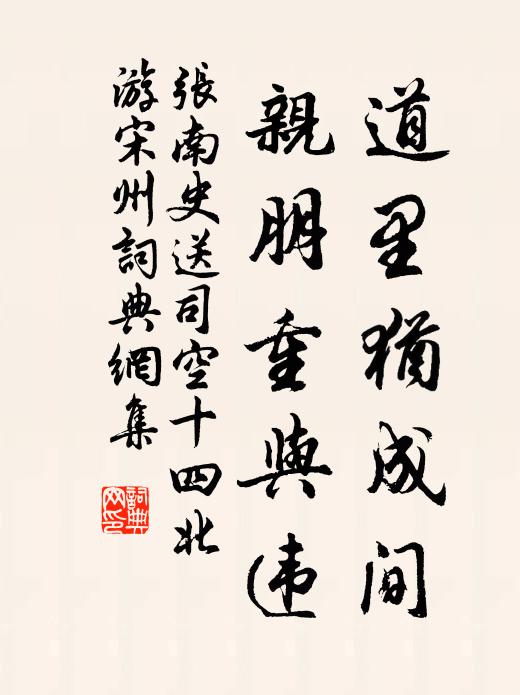 道里猶成间
親朋重與违
張南史送司空十四北
游宋州詞典網集
詞典
网印